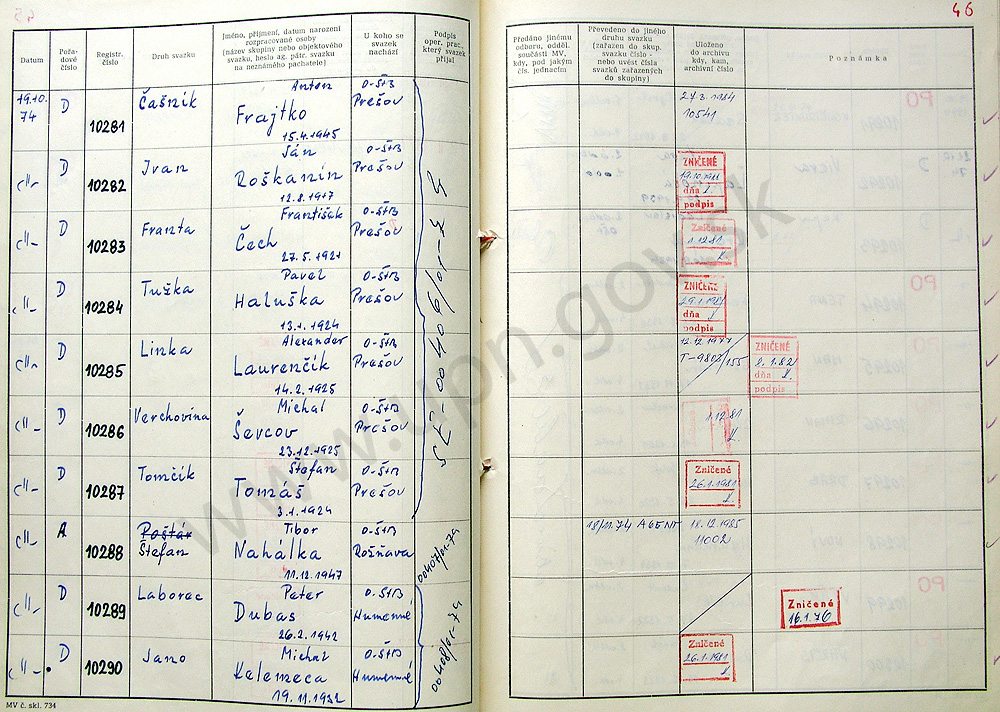 46
Datum
Pořadové číslo
Registr. číslo
Druh svazku
Jméno, příjmení, datum narození
rozpracované osoby
(název skupiny nebo objektového
svazku, heslo ag. pátr. svazku
na neznámého pachatele)
U koho se
svazek
nachází
Podpis
oper. prac.,
který svazek
přijal
Předáno jinému
odboru, odděl.
součásti MV,
kdy, pod jakým
čís. jednacím
Převedeno do jiného
druhu svazku
(zařazen do skup.
svazku číslo -
nebo uvést čísla
svazků zařazených
do skupiny)
Uloženo
do archivu
kdy, kam,
archivní číslo
Poznámka
19.10. 74 D 10281 Čašník Anton Frajtko 15.4.1945 O-ŠtB Prešov 27.3.1984 10541
-"- D 10282 Ivan Ján Roškanin 12.8.1947 O-ŠtB Prešov ZNIČENÉ dňa podpis
-"- D 10283 Franta František Čech 27.5.1921 O-ŠtB Prešov Zničené 1.12.81
-"- D 10284 Tužka Pavel Haluška 13.1.1924 O-ŠtB Prešov ZNIČENÉ 29.1.1981 dňa podpis
-"- D 10285 Linka Alexander Laurenčík 14.2.1925 O-ŠtB Prešov 12.12.1977 T-9802/155 ZNIČENÉ 2.1.82 dňa podpis
-"- D 10286 Verchovina Michal Ševcov 23.12.1925 O-ŠtB Prešov 1.12.81
-"- D 10287 Tomčík Štefan Tomáš 3.1.1924 O-ŠtB Prešov Zničené 26.1.1981
-"- A 10288 Poštár Štefan Tibor Nahálka 11.12.1947 O-ŠtB Rošňava 18/11.74 AGENT 18.12.1985 11002
-"- D 10289 Laborec Peter Dubas 26.2.1942 O-ŠtB Humenné Zničené 16.1.76
-"- D 10290 Jano Michal Kelemeca 19.11.1932 O-ŠtB Humenné Zničené 26.1.1981
MV č. skl. 734
www.upn.gov.sk